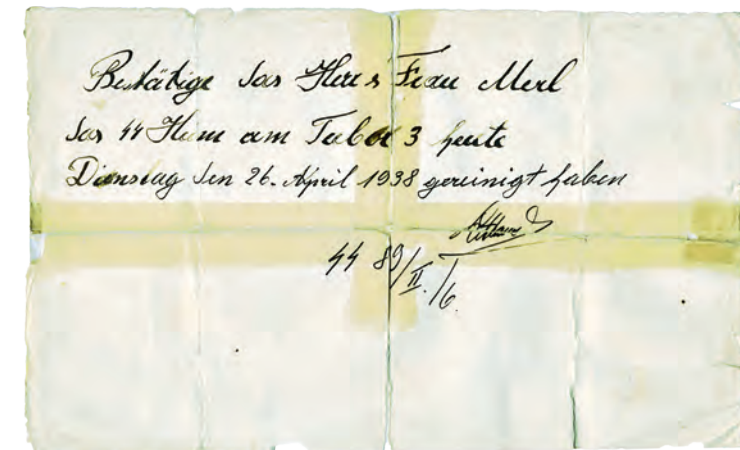 Bestätige das Herr u Frau Merl
das SS Heim am Tabor 3 heute
Dienstag den 26. April 1938 gereinigt haben
SS 89/II./6.